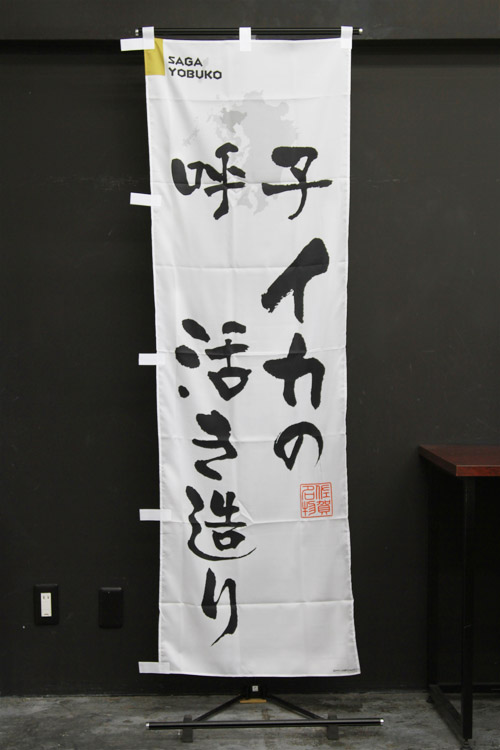 SAGA
YOBUKO
呼子
イカの
活き造り
佐賀
名物